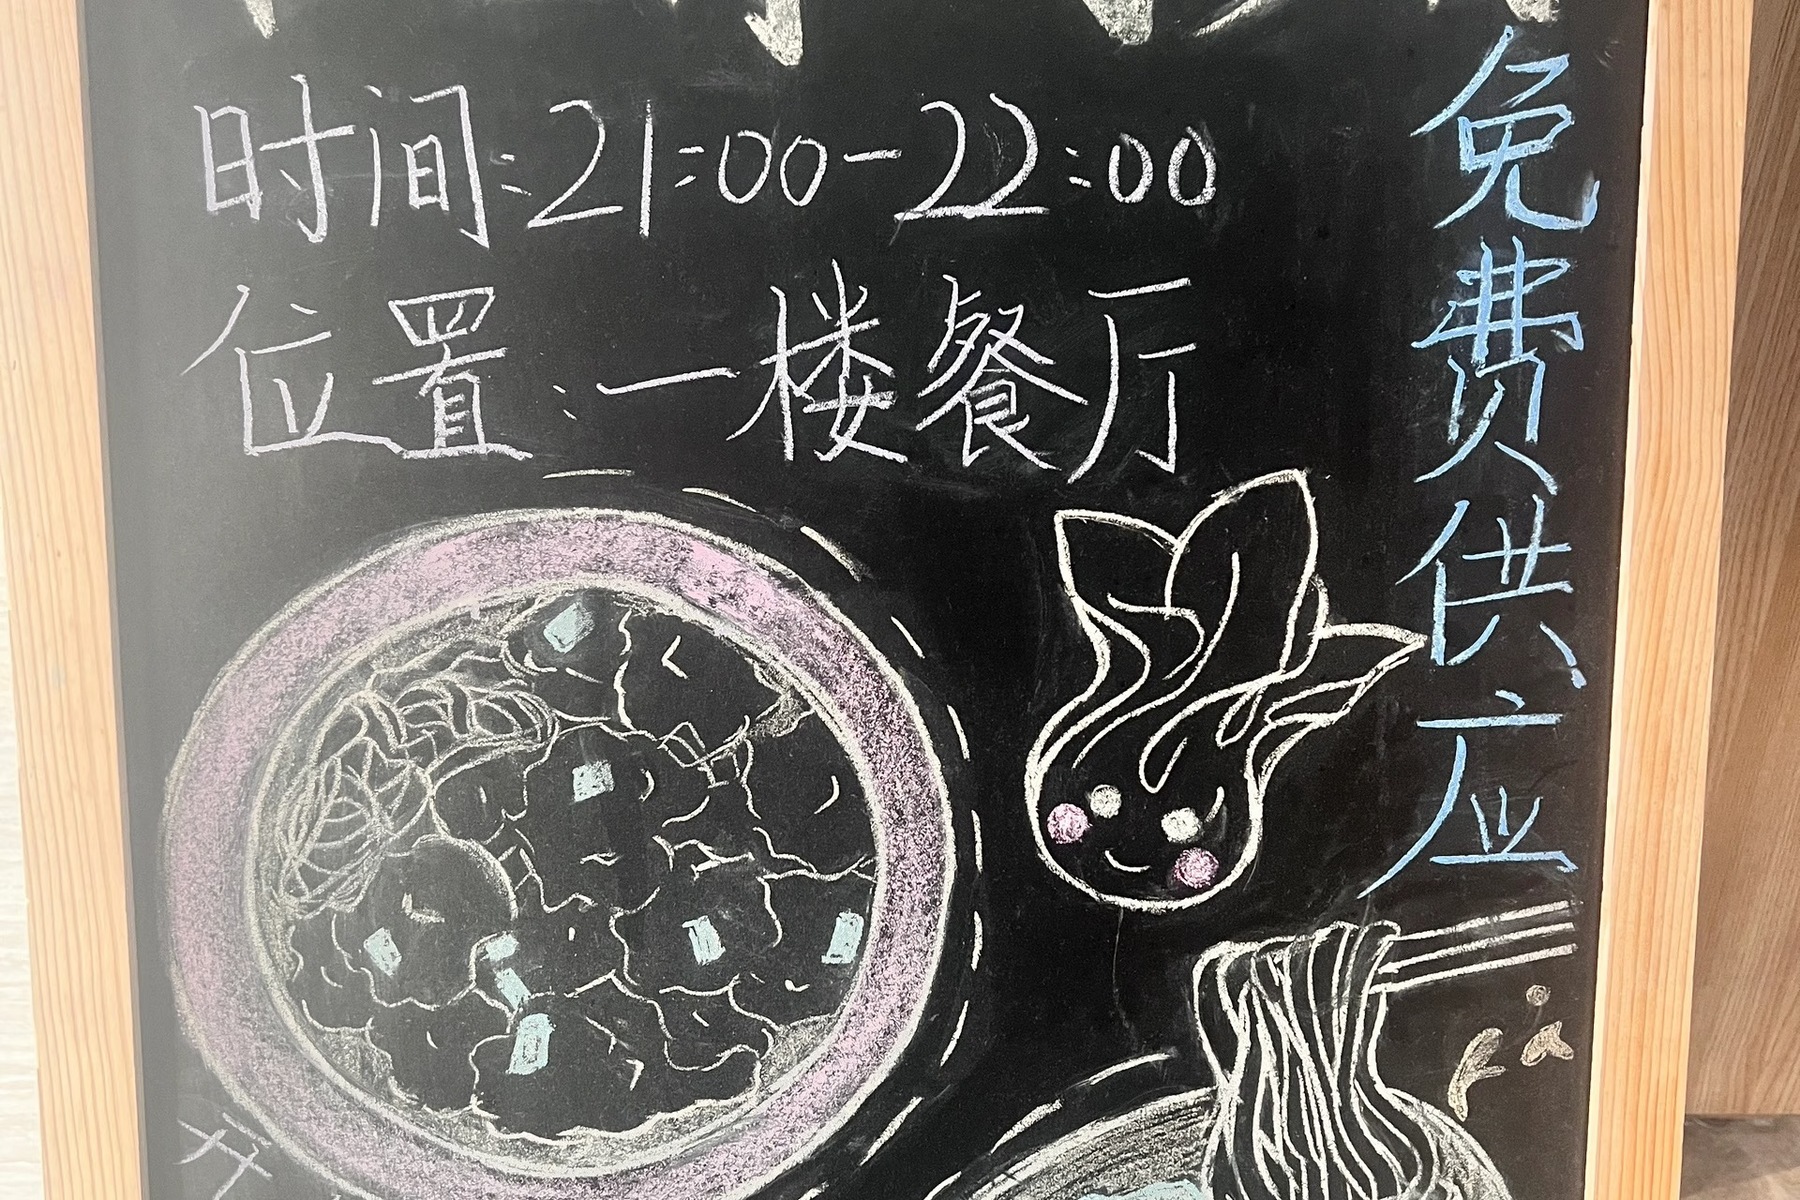 时间:21:00-22:00
位置:一楼餐厅
免费供应